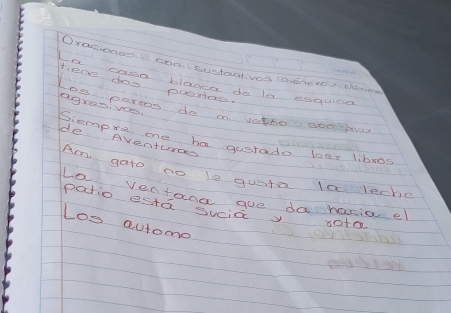 Oraciones con sustantivos
La casa blanca de la esquina
tiene dos puertas.
Los perros de mi son muy
agresivos.
Siempre me ha gustado leer libros
de Aventuras
Ami gato no le gusta la leche
La ventana que da hacia el
patio esta sucia y rota
Los automo